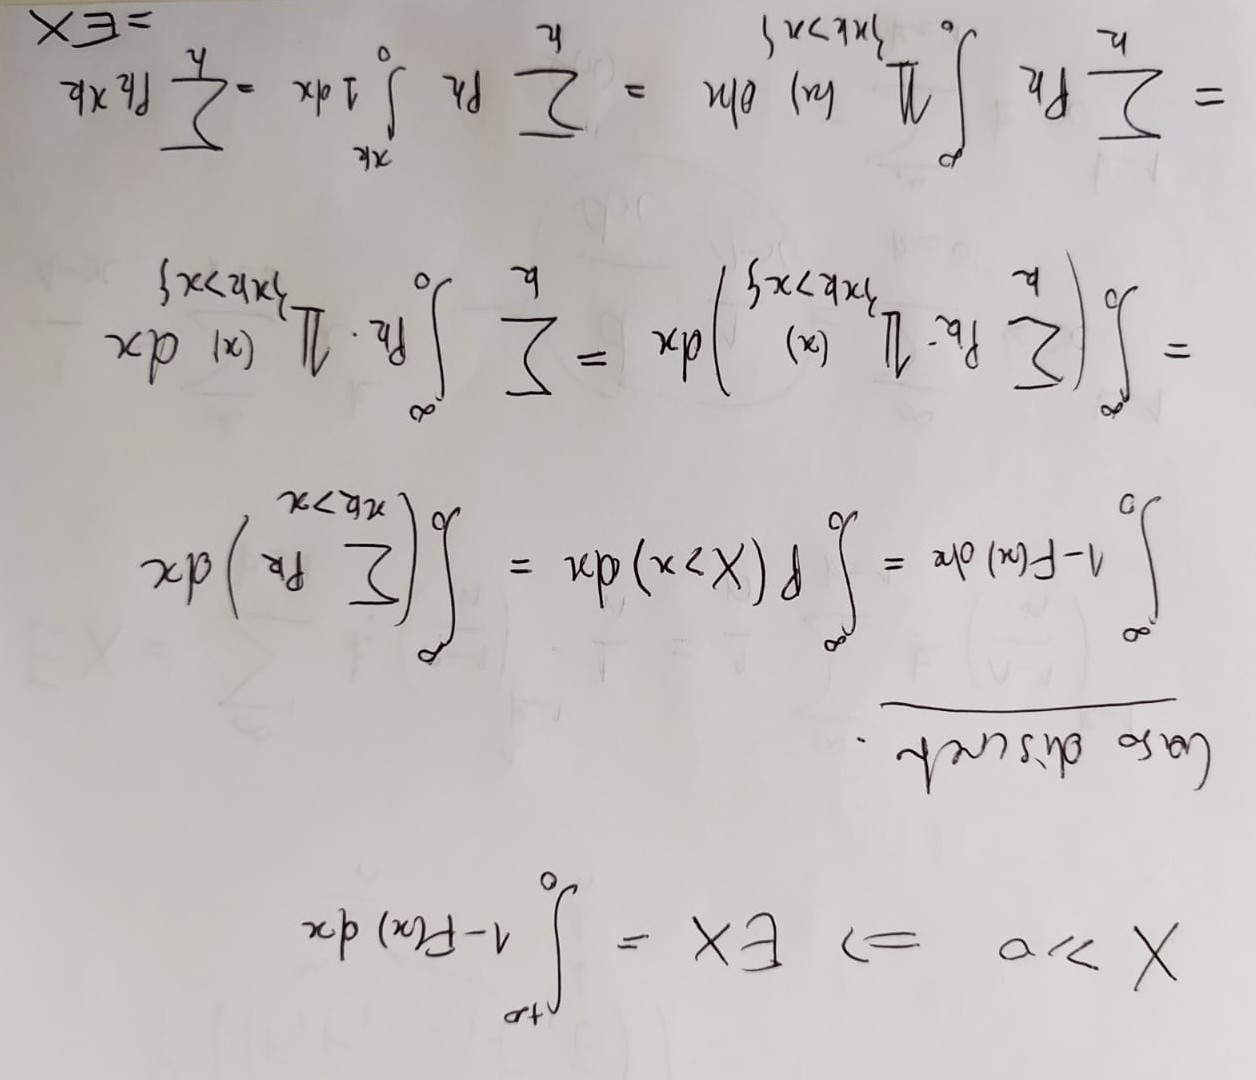 X ⩾ 0 ⇒ EX = ∫₀^{+∞} 1-F(x) dx
Caso discreto.
∫₀^∞ 1-F(x) dx = ∫₀^∞ P(X>x) dx = ∫₀^∞ (∑_{xk>x} Pk) dx
= ∫₀^∞ (∑_k Pk · 𝟙_{xk>x}(x)) dx = ∑_k ∫₀^∞ Pk · 𝟙_{xk>x}(x) dx
= ∑_k Pk ∫₀^∞ 𝟙_{xk>x}(x) dx = ∑_k Pk ∫₀^{xk} 1 dx = ∑_k Pk xk
= EX